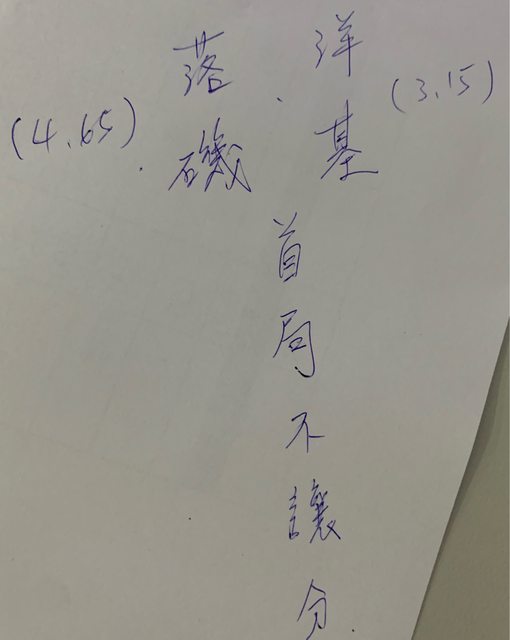 洋基
(3.15)
落磯
(4.65)
首局不讓分